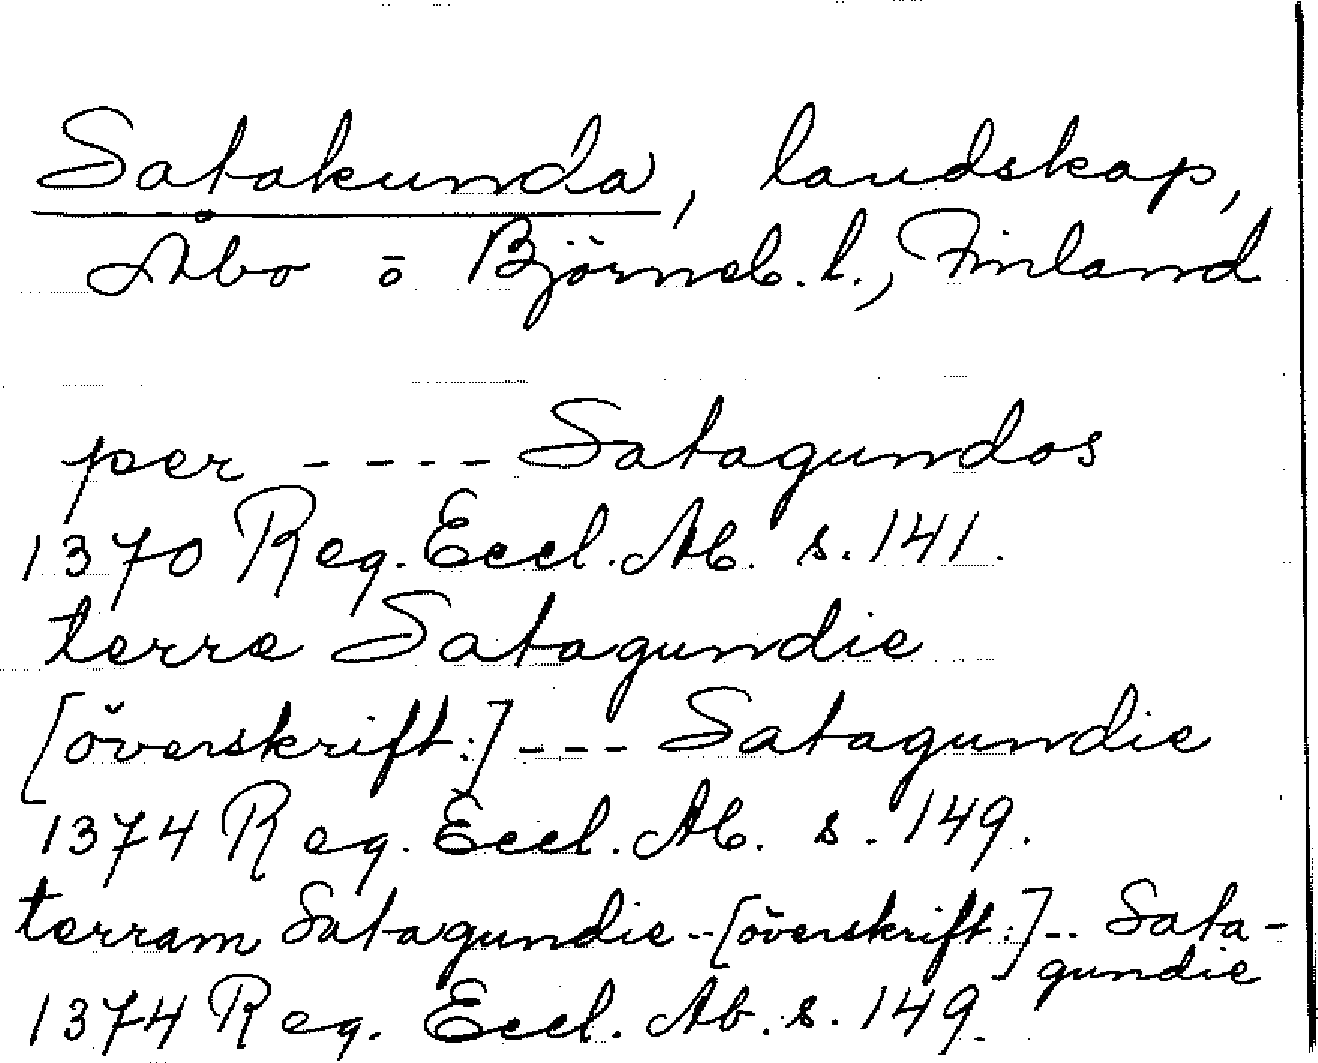 Satakunda, landskap,
Åbo o Björneb. l., Finland
per ---- Satagundos
1370 Reg. Eccl. Ab. s. 141.
terre Satagundie
[överskrift:] --- Satagundie
1374 Reg. Eccl. Ab. s. 149.
terram Satagundie -- [överskrift:] -- Sata-
gundie
1374 Reg. Eccl. Ab. s. 149.